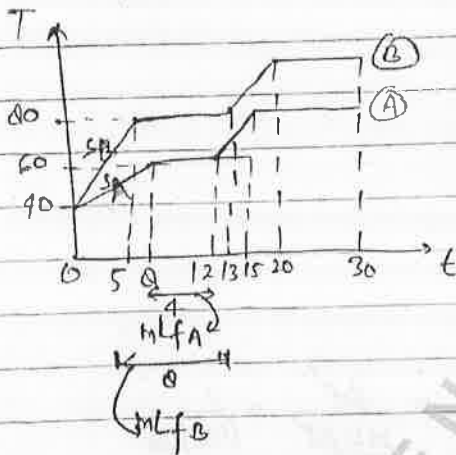 T
B
A
80
60
40
SPB
SPA
0 5 8 12 13 15 20 30 t
4
mLfA
8
mLfB